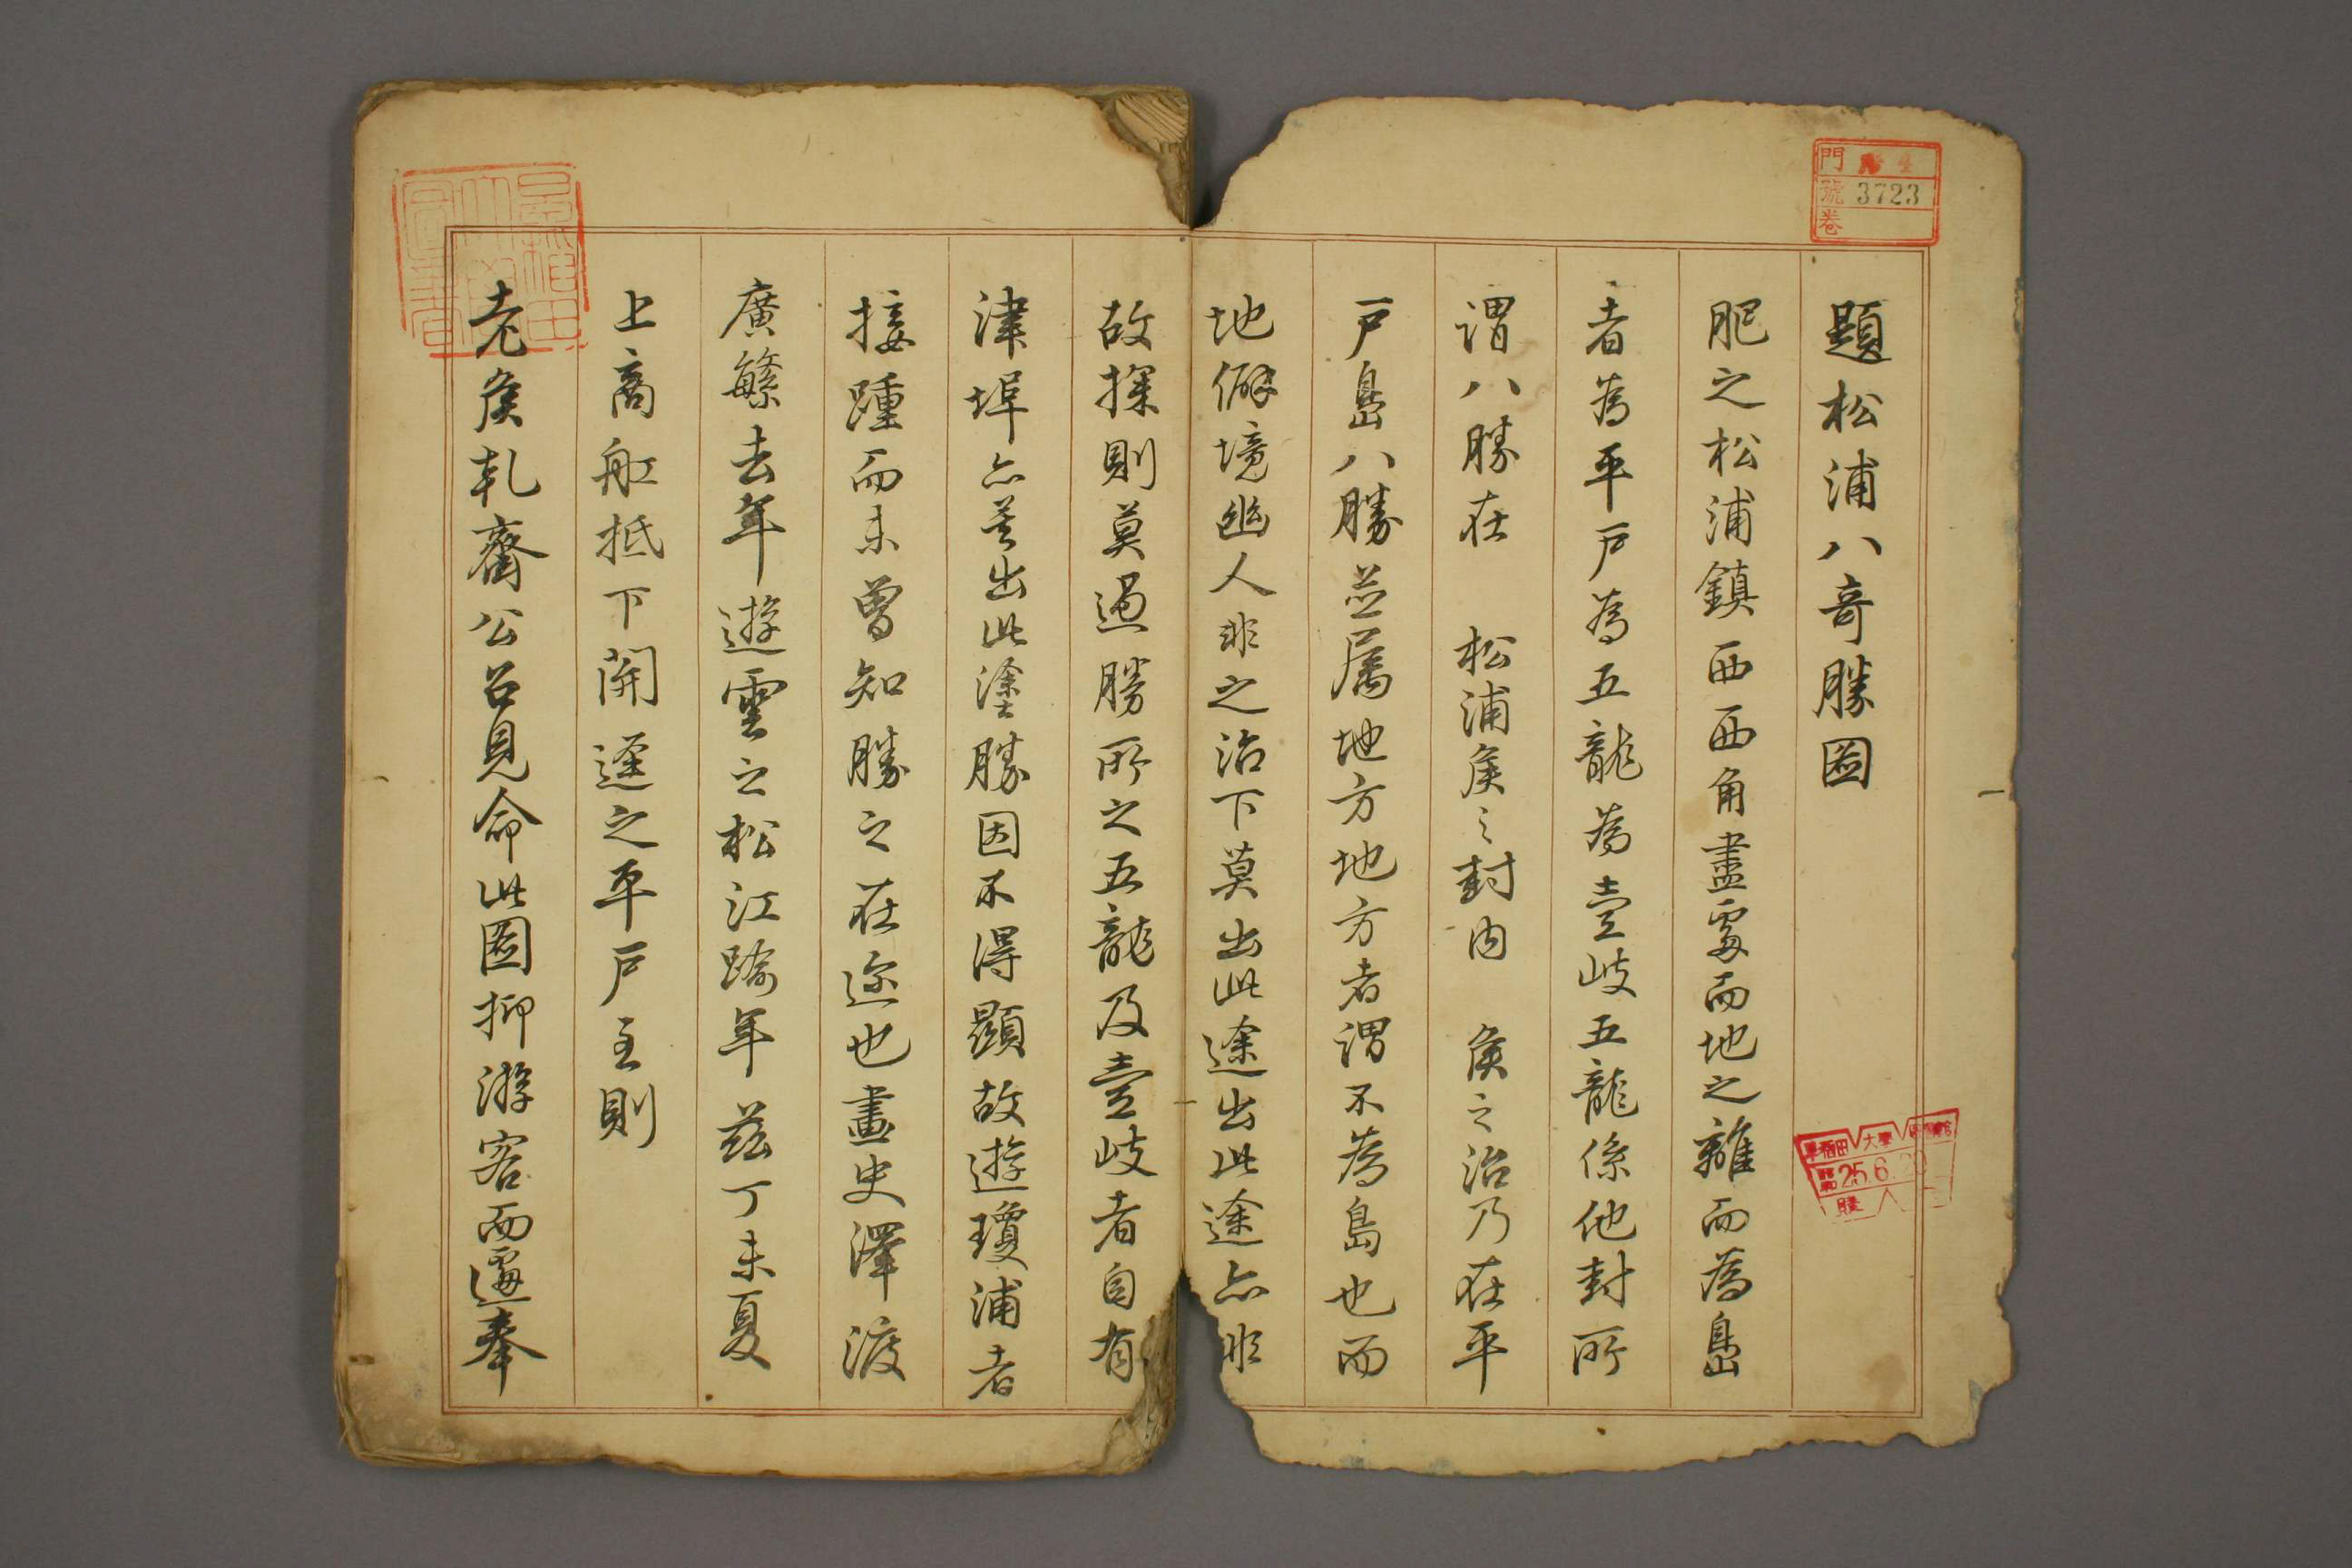 題松浦八奇勝圖
肥之松浦鎮西西角盡處而地之離而為島
者為平戸為五龍為壹岐五龍係他封所
謂八勝在 松浦侯之封內 侯之治乃在平
戸島八勝並属地方地方者謂不為島也而
地僻境幽人非之治下莫出此途出此途亦非
故探則莫過勝所之五龍及壹岐者自有
津埠亦莫出此塗勝因不得顕故遊瓊浦者
接踵而未曽知勝之在迩也畫史澤渡
廣繁去年遊雲之松江踰年茲丁未夏
上商舩抵下関迳之平戸至則
老侯乹齋公召見命此圖抑游客而遽奉
門 4
號 3723
卷
早稲田大學圖書館
昭和25.6.
購